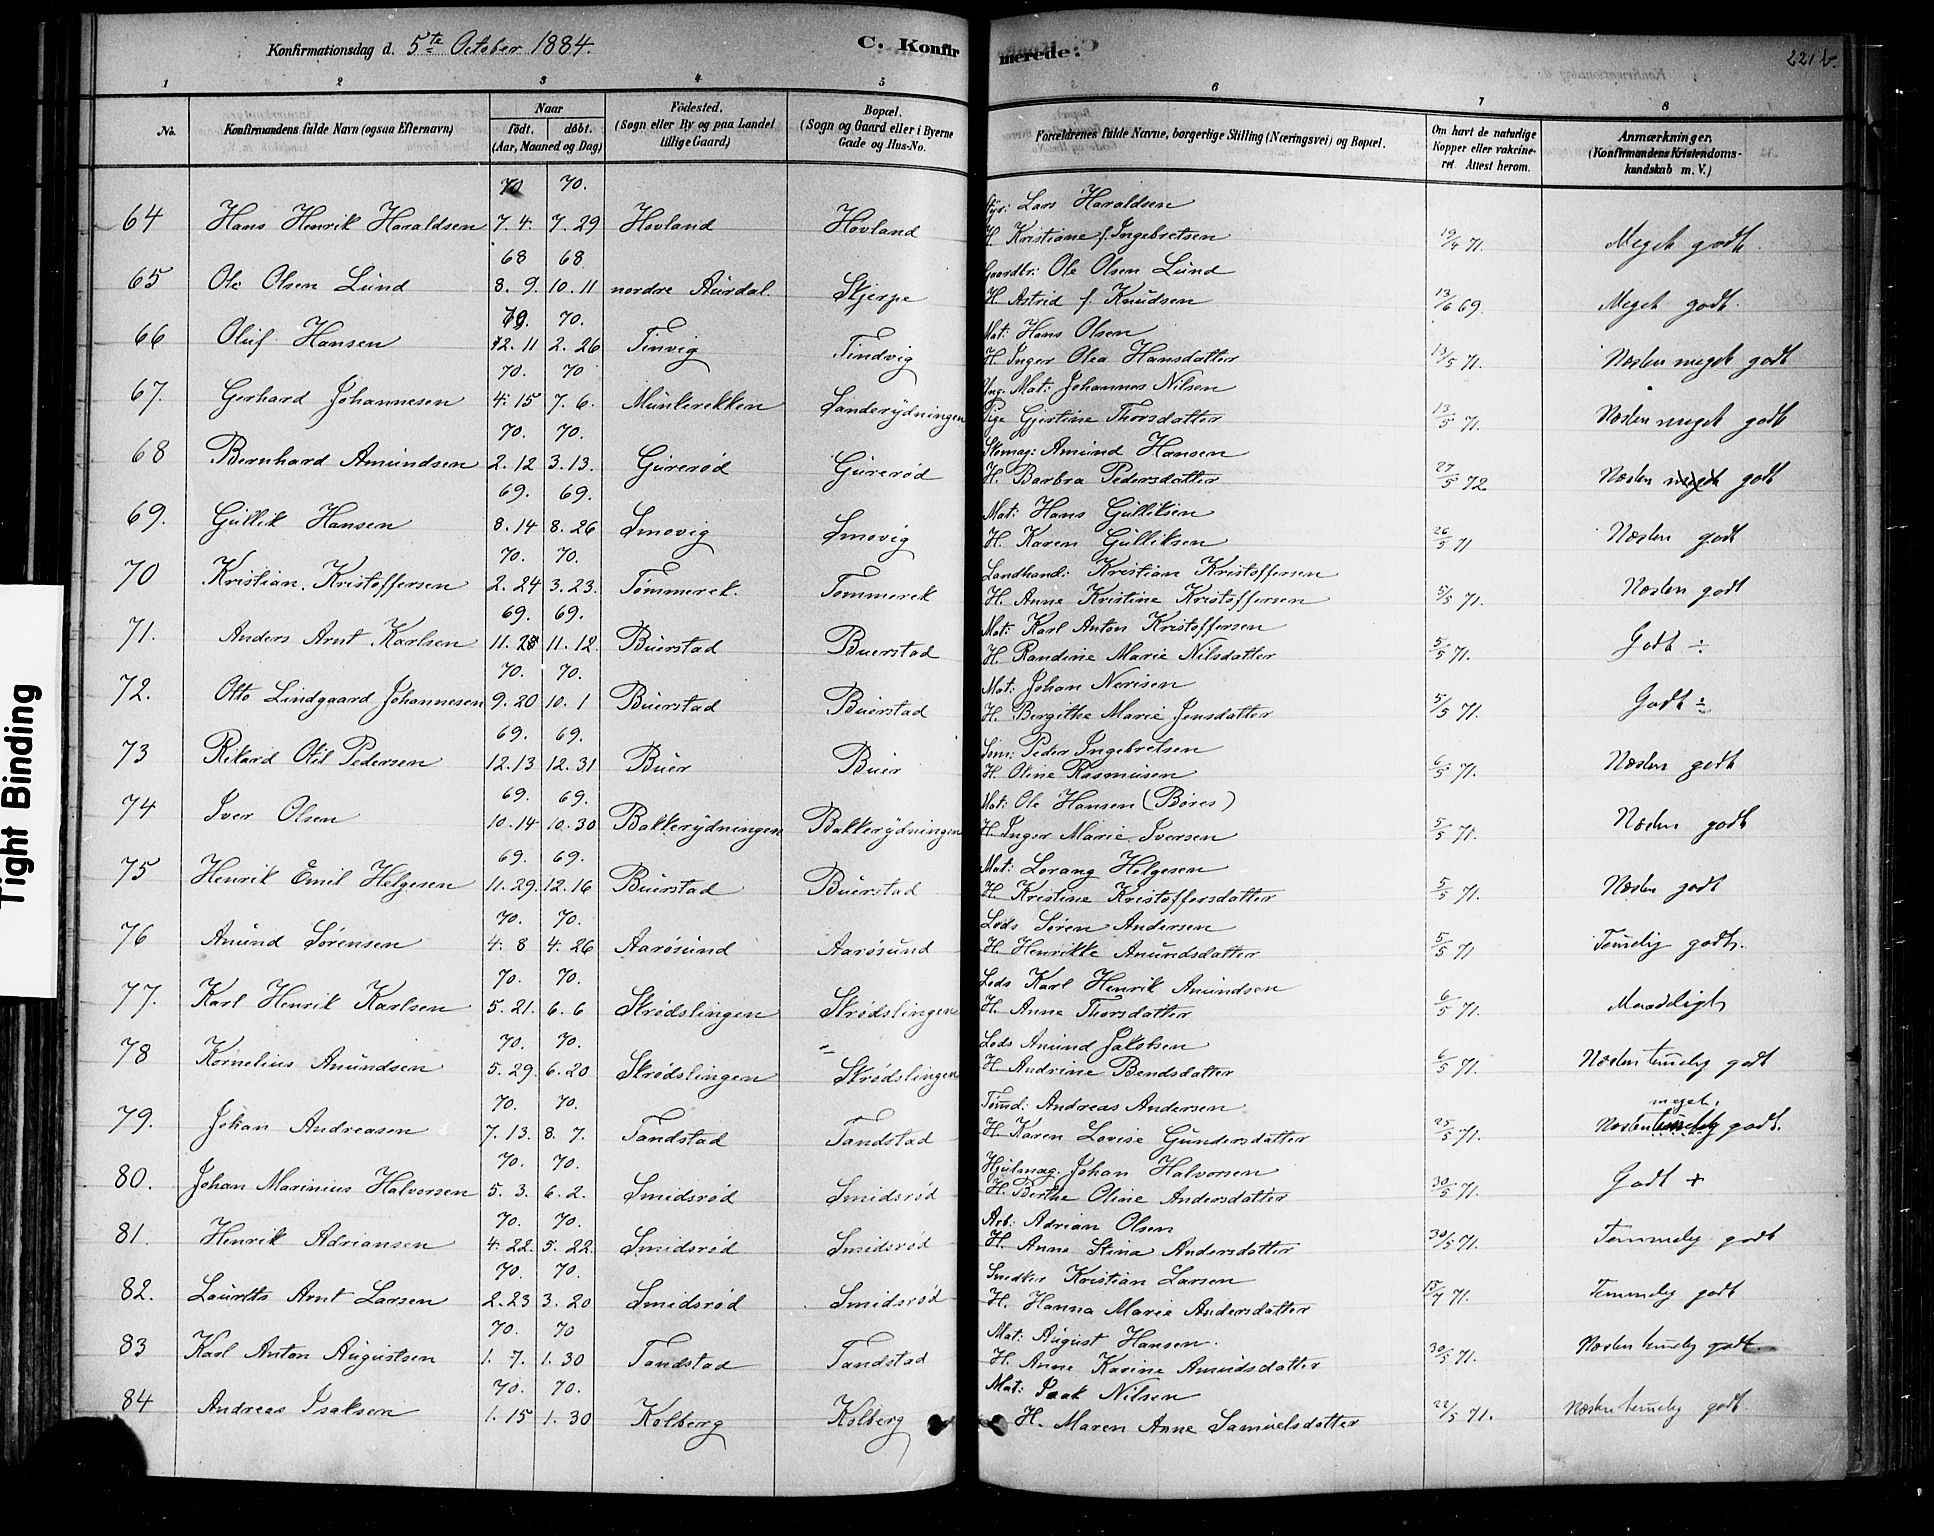 Konfirmationsdag d. 5te October 1884.
C. Konfirmerede.
221 b.
1 2 3 4 5 6 7 8
No.
Konfirmandens fulde Navn (ogsaa Efternavn)
Naar
födt. döbt.
(Aar, Maaned og Dag)
Födested.
(Sogn eller By og paa Landet
tillige Gaard)
Bopæl.
(Sogn og Gaard eller i Byerne
Gade og Hus-No.
Forældrenes fulde Navne, borgerlige Stilling (Næringsvei) og Bopæl.
Om havt de naturlige
Kopper eller vakcine-
ret Attest herom.
Anmærkninger,
(Konfirmandens Kristendoms-
kundskab m. V.)
70 70. Lars Haraldsen
64 Hans Henrik Haraldsen 7. 4. 7. 29 Hovland Hovland H. Kristiane f. Ingebretsen 19/4 71. Meget godt.
68 68 Gaardbr: Ole Olsen Lund
65 Ole Olsen Lund 8. 9. 10. 11 nordre Aurdal. Skjerpe H. Astrid f. Knudsen 13/6 69. Meget godt.
70. Mat: Hans Olsen
66 Oluf Hansen 12. 11 2. 26 Tinvig Tindvig H. Inger Olea Hansdatter 13/5 71. Næsten meget godt
70. 70 Ung. Mat: Johannes Nilsen
67. Gerhard Johannesen 4. 15 7. 6. Munkerekken Sanderydningen Pige Gjertine Thorsdatter 13/5 71. Næsten meget godt
70. 70. Skomag: Amund Hansen
68 Bernhard Amundsen 2. 12 3. 13. Gurerød Gurerød H. Barbra Pedersdatter 27/5 72 Næsten meget godt
69. 69. Mat: Hans Gulliksen
69. Gullik Hansen 8. 14 8. 26 Smovig Smovig H. Karen Gulliksen 26/5 71 Næsten godt
70. 70. Landhand: Kristian Kristoffersen
70 Kristian Kristoffersen 2. 24 3. 23. Tømmerek. Tommerek H. Anne Kristine Kristoffersen 5/5 71. Næsten godt
69. 69. Mat: Karl Anton Kristoffersen
71. Anders Arnt Karlsen 11. 28 11. 12. Buerstad Buerstad H. Randine Marie Nilsdatter 5/5 71. Godt ÷
70. 70. Mat: Johan Narisen
72. Otto Lindgaard Johannesen 9. 20 10. 1 Buerstad Buerstad H. Bergithe Marie Jensdatter 5/5 71. Godt ÷
69. 69. Søm: Peder Ingebretsen
73 Rikard Otil Pedersen 12. 13 12. 31 Buer Buer H. Oline Rasmusen 6/5 71. Næsten godt
69. 69. Mat: Ole Hansen (Børes)
74 Iver Olsen 10. 14 10. 30 Bakkerydningen Bakkerydningen H. Inger Marie Iversen 5/5 71. Næsten godt
69. 69. Mat: Lorang Helgesen
75 Henrik Emil Helgesen 11. 29. 12. 16 Buerstad Buerstad H. Kristine Kristoffersdatter 5/5 71. Næsten godt
70. 70. Lods Søren Andersen
76 Anund Sørensen 4. 8 4. 26 Aarøsund Aarøsund H. Henrikke Anundsdatter 5/5 71 Temmelig godt.
70. 70. Lods Karl Henrik Anundsen
77. Karl Henrik Karlsen 5. 21. 6. 6 Skrødslingen Skrødslingen H. Anne Thorsdatter 6/5 71. Maadeligt
70. 70. Lods Anund Jakobsen
78 Kornelius Anundsen 5. 29. 6. 20 Skrødslingen Skrødslingen H. Andrine Bendsdatter 6/5 71. Næsten temmelig godt
70. 70. Tømd: Andreas Andersen meget.
79. Johan Andreasen 7. 13. 8. 7. Tandstad Tandstad H. Karen Lovise Gundersdatter 25/5 71. Næsten temmelig godt.
70. 70. Hjulmag. Johan Halvorsen
80. Johan Marinius Halvorsen 5. 3. 6. 2. Smidsrød Smidsrød H. Berthe Oline Andersdatter 30/5 71. Godt +
70. 70. Arb: Adrian Olsen
81. Henrik Adriansen 4. 22. 5. 22. Smidsrød Smidsrød H. Anne Stina Andersdatter 30/5 71. Temmelig godt
70. 70. Kristian Larsen
82. Laurits Arnt Larsen 2. 23 3. 20 Smidsrød Smidsrød H. Hanna Marie Andersdatter 71. Temmelig godt
70. 70 Mat: August Hansen.
83 Karl Anton Augustsen 1. 7. 1. 30 Tandstad Tandstad H. Anne Karine Amundsdatter 30/5 71. Næsten temmelig godt.
70. 70. Mat: Isak Nilsen
84 Andreas Isaksen 1. 15 1. 30 Kolberg Kolberg H. Maren Anne Samuelsdatter 22/5 71. Næsten temmelig godt
Tight Binding